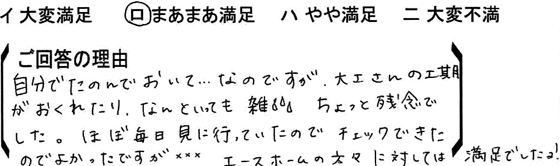 イ 大変満足 ロ まあまあ満足 ハ やや満足 ニ 大変不満
ご回答の理由
自分でたのんでおいて…なのですが、大工さんの工期
がおくれたり、なんといっても 雑 ちょっと残念で
した。ほぼ毎日見に行っていたので チェックできた
のでよかったですが××× エースホームの方々に対しては 満足でした